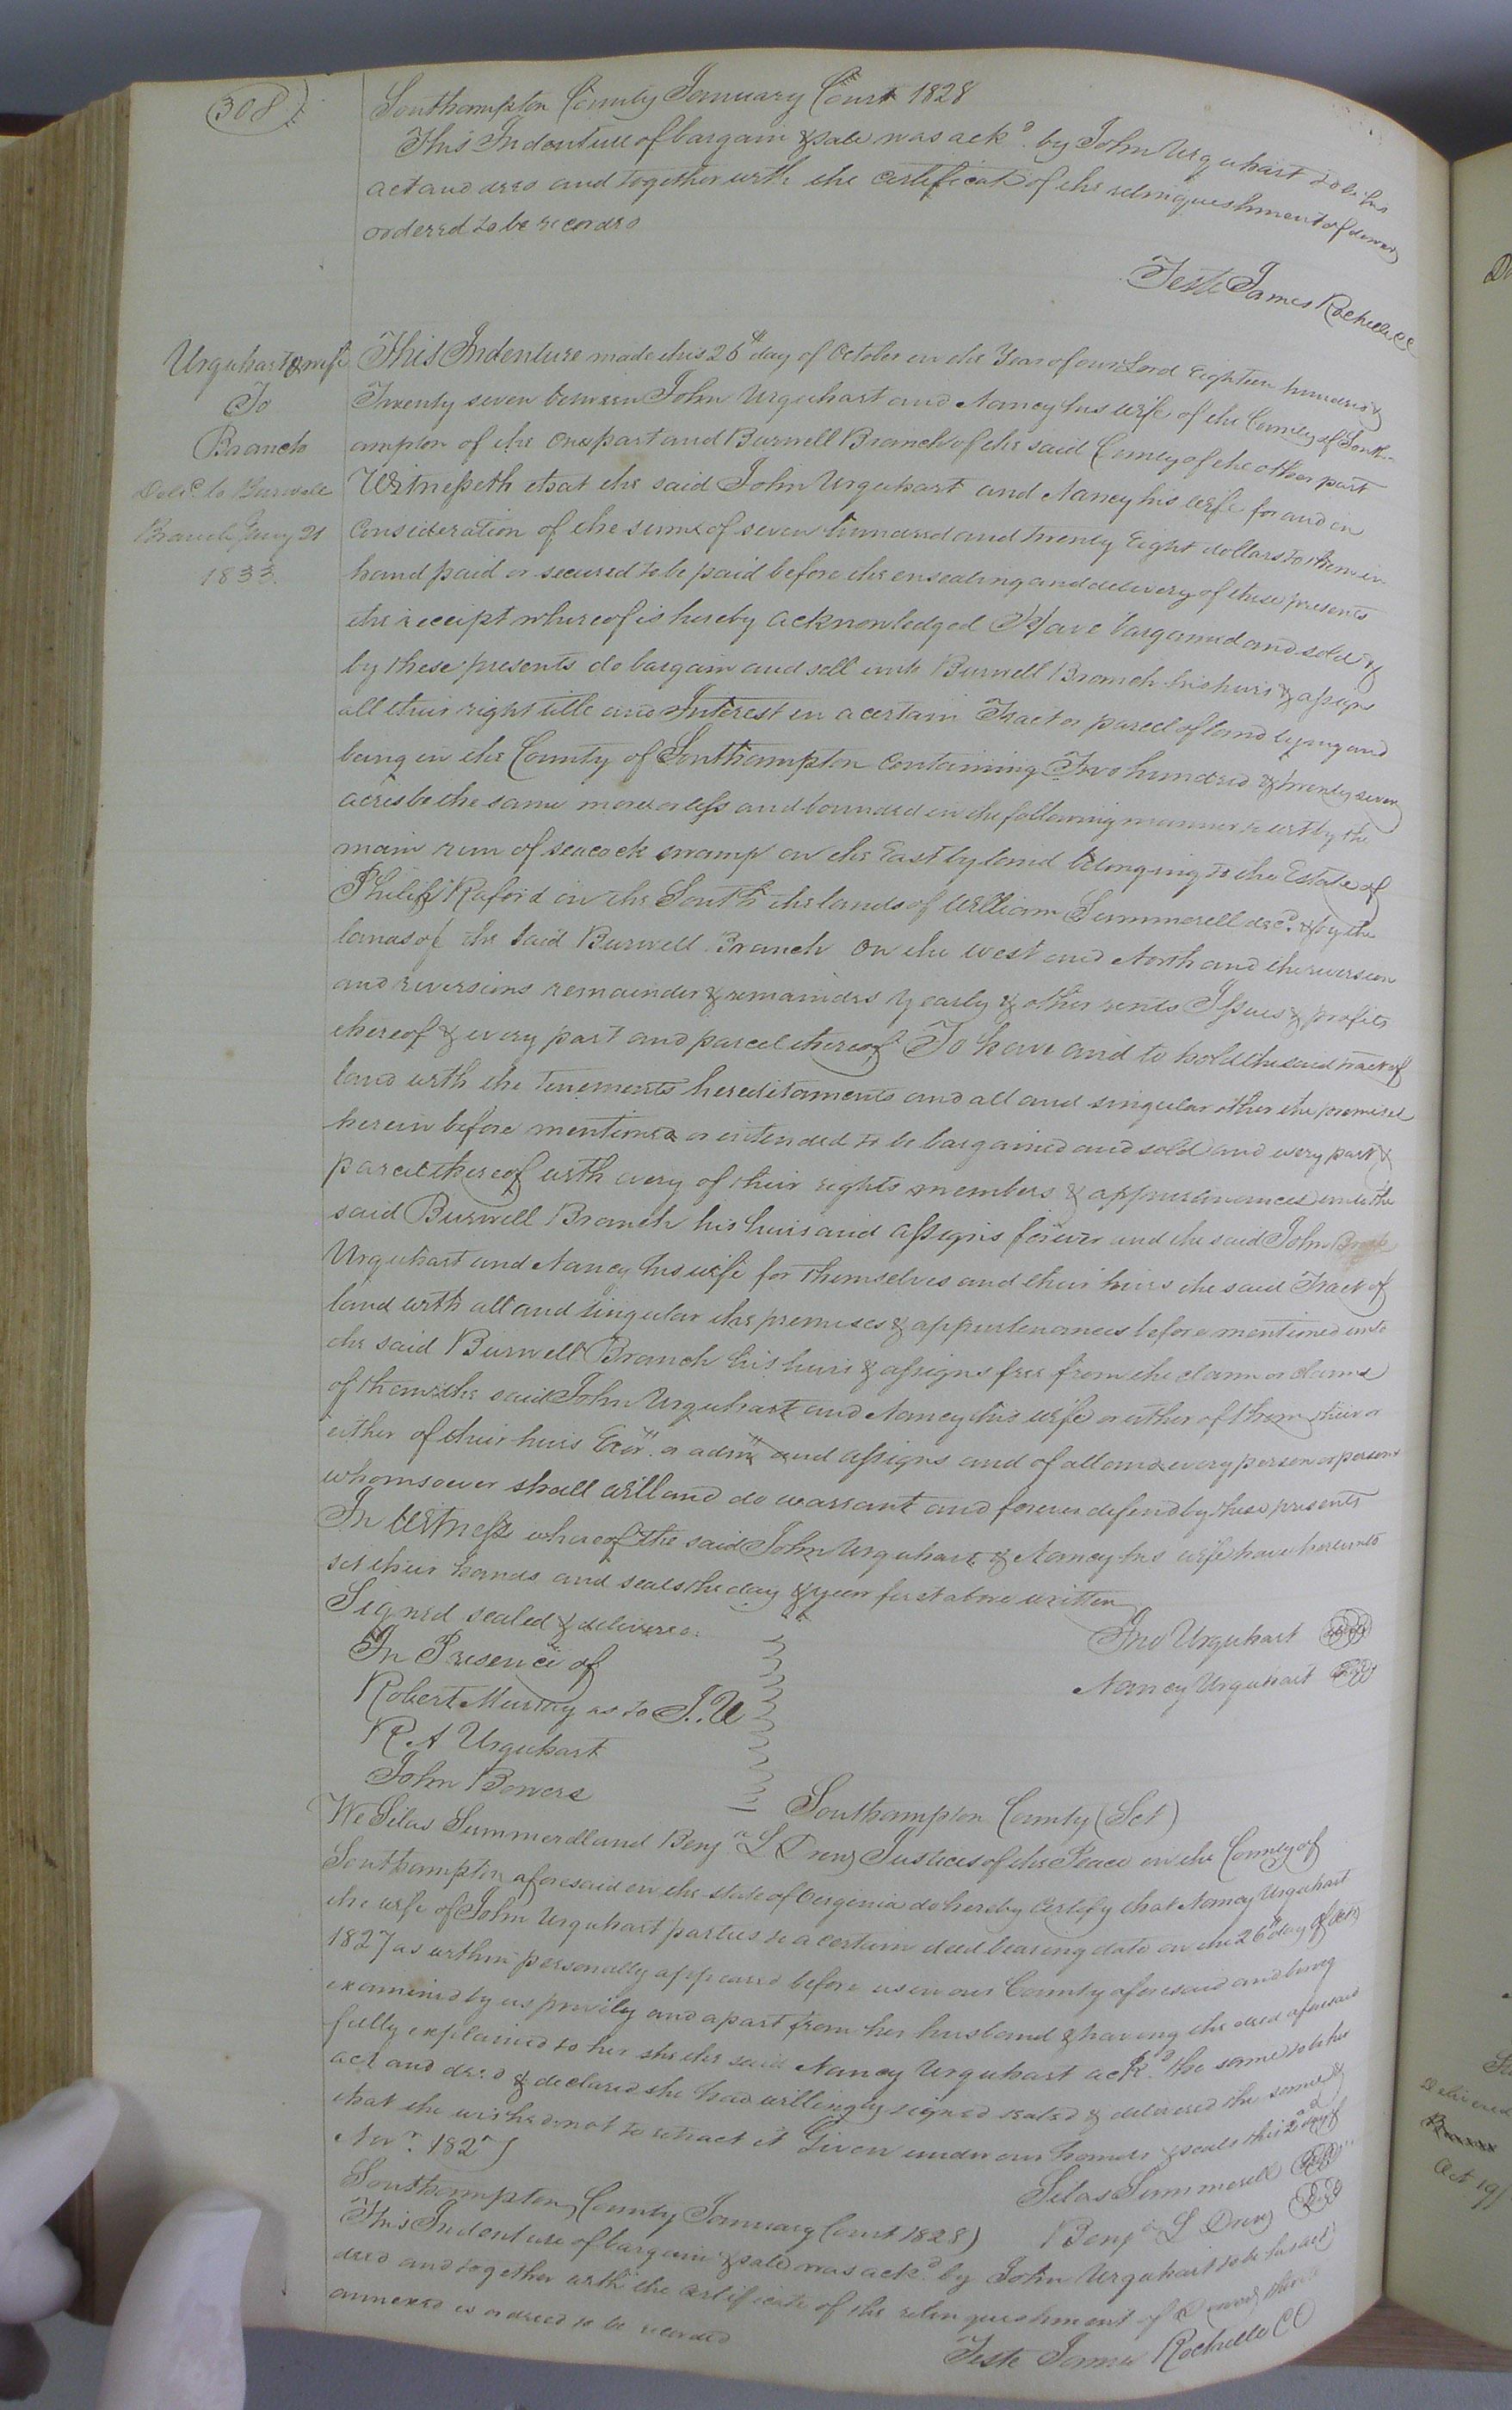 308
Southampton County January Court 1828
This Indenture of bargain & sale was ackd. by John Urquhart to be his
act and deed and together with the certificate of the relinquishment of dower
ordered to be recorded
Teste James Rochelle CC
Urquhart & wife
To
Branch
Deld. to Burwell
Branch Jany 21
1833.
This Indenture made this 26th day of October in the Year of our Lord Eighteen hundred &
Twenty seven between John Urquhart and Nancy his wife of the County of South-
ampton of the One part and Burwell Branch of the said County of the other part
Witnesseth that the said John Urquhart and Nancy his wife for and in
Consideration of the sum of seven hundred and twenty Eight dollars to them in
hand paid or secured to be paid before the ensealing and delivery of these presents
the receipt whereof is hereby acknowledged Have bargained and sold &
by these presents do bargain and sell unto Burwell Branch his heirs & assigns
all their right title and Interest in a certain Tract or parcel of land lying and
being in the County of Southampton Containing Two hundred & twenty seven
acres be the same more or less and bounded in the following manner to wit by the
main run of seacock swamp on the East by land belonging to the Estate of
Philip Raford on the South the lands of William Summerell decd. & by the
lands of the said Burwell Branch on the west and North and the reversion
and reversions remainder & remainders yearly & other rents Issues & profits
thereof & every part and parcel thereof To have and to hold the said tract of
land with the Tenements hereditaments and all and singular other the premises
herein before mentioned or intended to be bargained and sold and every part &
parcel thereof with every of their rights members & appurtenances unto the
said Burwell Branch his heirs and assigns forever and the said John
Urquhart and Nancy his wife for themselves and their heirs the said Tract of
land with all and singular the premises & appurtenances before mentioned unto
the said Burwell Branch his heirs & assigns free from the claim or claims
of them the said John Urquhart and Nancy his wife or either of them their or
either of their heirs Exors. or admrs and assigns and of all and every person or persons
whomsoever shall will and do warrant and forever defend by these presents
In Witness whereof the said John Urquhart & Nancy his wife have hereunto
set their hands and seals the day & year first above written
Signed sealed & delivered
In Presence of
Robert Murray as to J. U
R. A Urquhart
John Bowers
Jno Urquhart
Nancy Urquhart
Southampton County (Sct)
We Silas Summerell and Benja L Drew Justices of the Peace in the County of
Southampton aforesaid in the state of Virginia do hereby Certify that Nancy Urquhart
the wife of John Urquhart parties to a certain deed bearing date on the 26th day of Octr
1827 as within personally appeared before us in our County aforesaid and being
examined by us privily and apart from her husband & having the deed aforesaid
fully explained to her she the said Nancy Urquhart ackd. the same to be her
act and deed & declared she had willingly signed sealed & delivered the same &
that she wished not to retract it Given under our hands & seals this 2nd day of
Novr. 1827
Silas Summerell
Benja L Drew
Southampton County January Court 1828)
This Indenture of bargain & sale was ackd. by John Urquhart to be his act &
deed and together with the certificate of the relinquishment of Dower thereto
annexed is ordered to be recorded
Teste James Rochelle CC
Oct 19